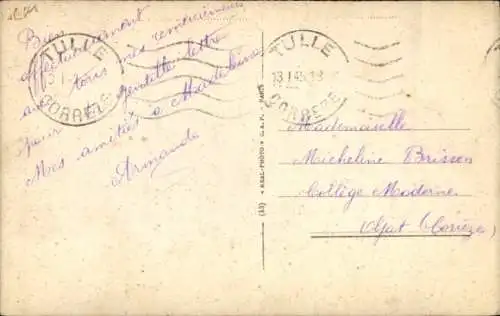 Bien
affectueusement
avec tous mes remerciements
pour ta gentille lettre
Mes amitiés à Madeleine
Armande
TULLE
13-1
CORRÈZE
TULLE
13-1-45
CORREZE
(13) « REAL-PHOTO » C. A. P. - PARIS
Mademoiselle
Micheline Brisson
Collège Moderne
(Corrèze)